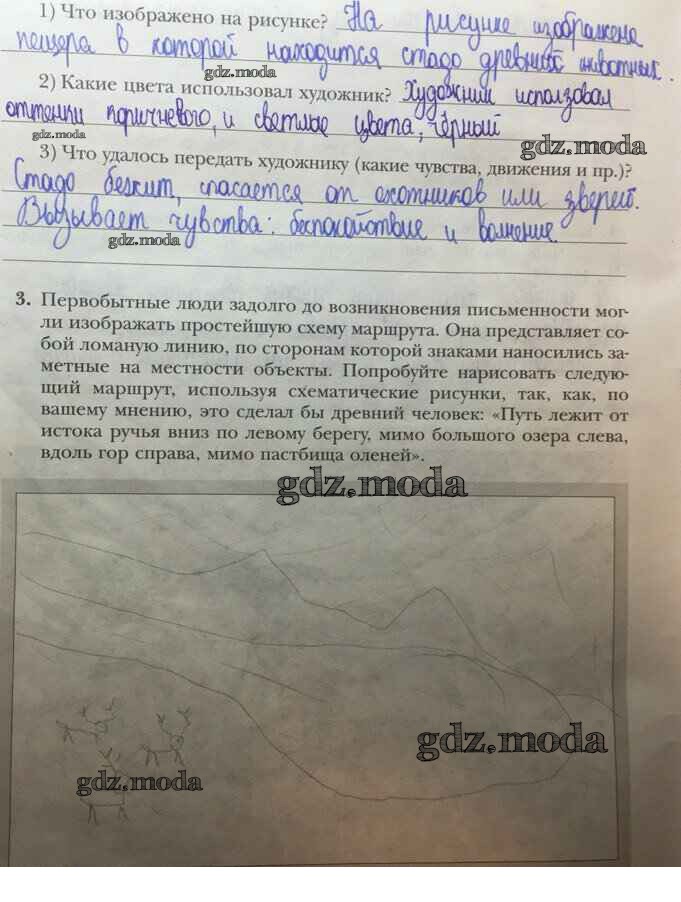 1) Что изображено на рисунке? На рисунке изображена
пещера в которой находится стадо древних животных.
gdz.moda
2) Какие цвета использовал художник? Художник исползовал
оттенки коричневого, и светлые цвета, чёрный
gdz.moda
gdz.moda
3) Что удалось передать художнику (какие чувства, движения и пр.)?
Стадо бежит, спасается от охотников или зверей.
Вызывает чувства: беспокойствие и волнение.
gdz.moda
3. Первобытные люди задолго до возникновения письменности мог-
ли изображать простейшую схему маршрута. Она представляет со-
бой ломаную линию, по сторонам которой знаками наносились за-
метные на местности объекты. Попробуйте нарисовать следую-
щий маршрут, используя схематические рисунки, так, как, по
вашему мнению, это сделал бы древний человек: «Путь лежит от
истока ручья вниз по левому берегу, мимо большого озера слева,
вдоль гор справа, мимо пастбища оленей».
gdz.moda
gdz.moda
gdz.moda